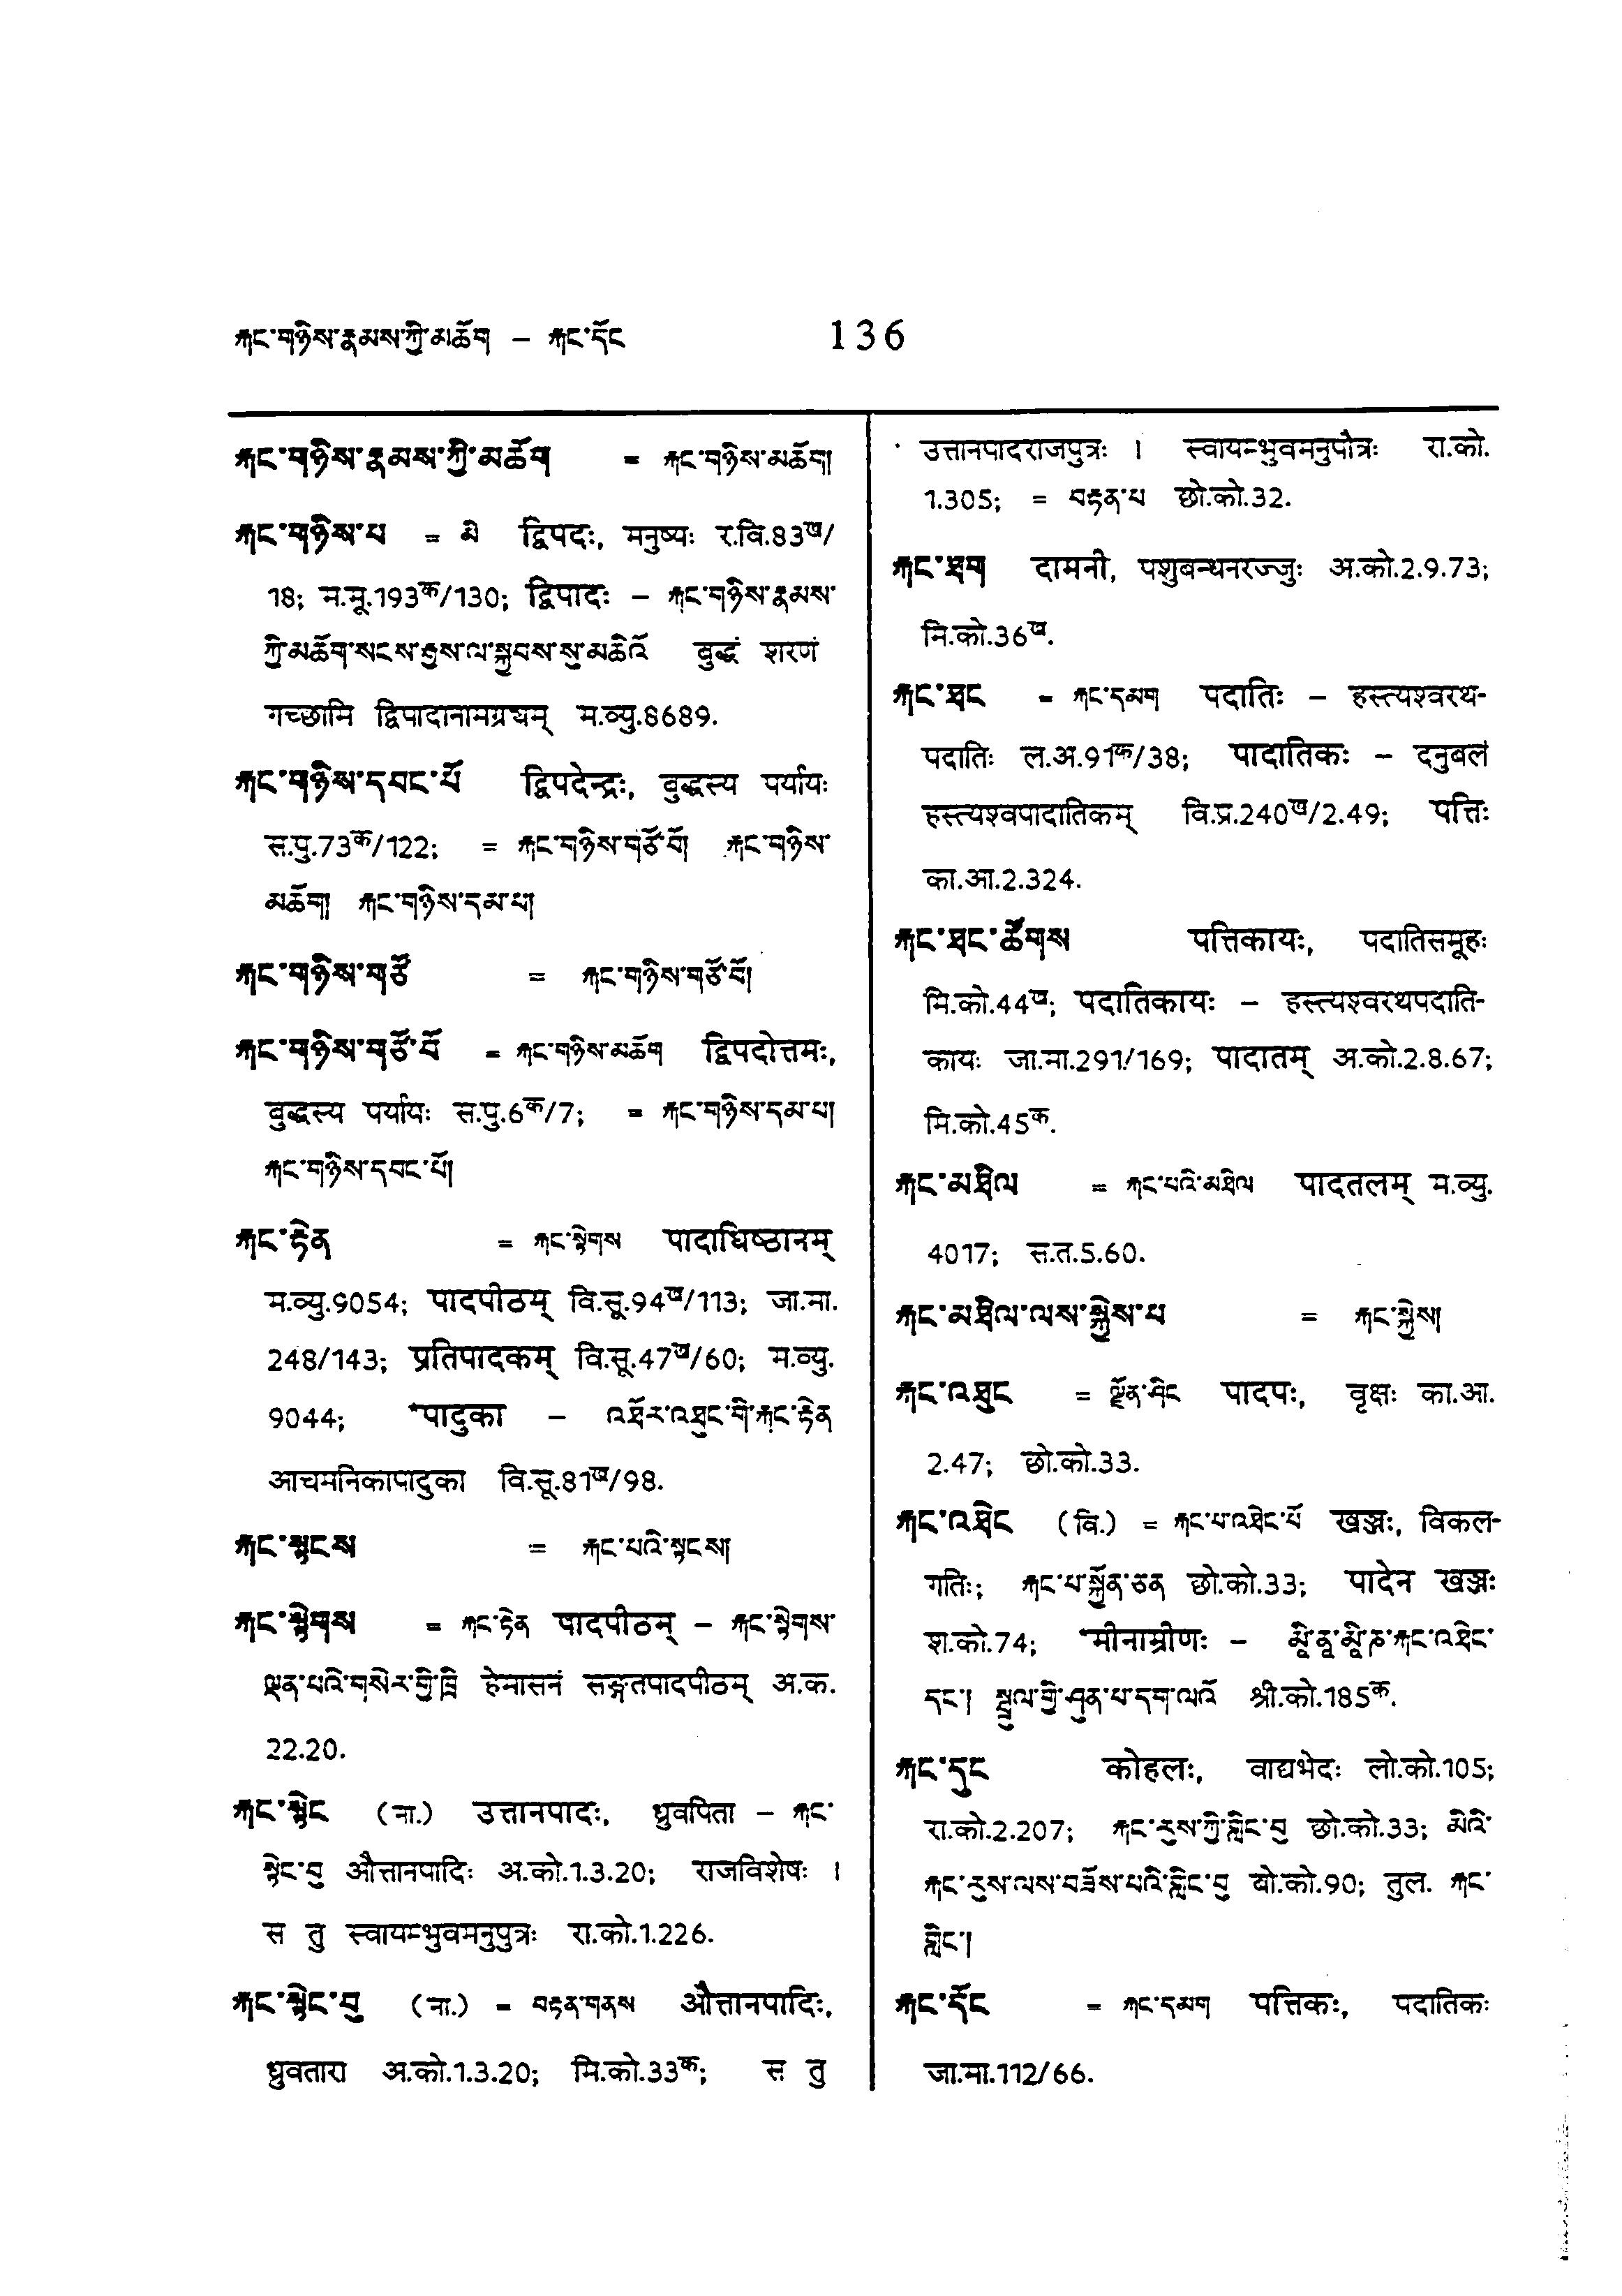 རྐང་གཉིས་རྣམས་ཀྱི་མཆོག – རྐང་དོང
136
རྐང་གཉིས་རྣམས་ཀྱི་མཆོག = རྐང་གཉིས་མཆོག།
རྐང་གཉིས་པ = མི द्विपदः, मनुष्यः र.वि.83ख/
18; म.मू.193क/130; द्विपादः – རྐང་གཉིས་རྣམས་
ཀྱི་མཆོག་སངས་རྒྱས་ལ་སྐྱབས་སུ་མཆིའོ बुद्धं शरणं
गच्छामि द्विपादानामग्र्यम् म.व्यु.8689.
རྐང་གཉིས་དབང་པོ द्विपदेन्द्रः, बुद्धस्य पर्यायः
स.पु.73क/122; = རྐང་གཉིས་གཙོ་བོ། རྐང་གཉིས་
མཆོག། རྐང་གཉིས་དམ་པ།
རྐང་གཉིས་གཙོ = རྐང་གཉིས་གཙོ་བོ།
རྐང་གཉིས་གཙོ་བོ = རྐང་གཉིས་མཆོག द्विपदोत्तमः,
बुद्धस्य पर्यायः स.पु.6क/7; = རྐང་གཉིས་དམ་པ།
རྐང་གཉིས་དབང་པོ།
རྐང་རྟེན = རྐང་སྟེགས पादाधिष्ठानम्
म.व्यु.9054; पादपीठम् वि.सू.94ख/113; जा.मा.
248/143; प्रतिपादकम् वि.सू.47ख/60; म.व्यु.
9044; *पादुका – འཐོར་འཐུང་གི་རྐང་རྟེན
आचमनिकापादुका वि.सू.81ख/98.
རྐང་སྟངས = རྐང་པའི་སྟངས།
རྐང་སྟེགས = རྐང་རྟེན पादपीठम् – རྐང་སྟེགས་
ལྡན་པའི་གསེར་གྱི་ཁྲི हेमासनं सङ्गतपादपीठम् अ.क.
22.20.
རྐང་སྟེང (ना.) उत्तानपादः, ध्रुवपिता – རྐང་
སྟེང་བུ औत्तानपादिः अ.को.1.3.20; राजविशेषः ।
स तु स्वायम्भुवमनुपुत्रः रा.को.1.226.
རྐང་སྟེང་བུ (ना.) = བརྟན་གནས औत्तानपादिः,
ध्रुवतारा अ.को.1.3.20; मि.को.33क; स तु
उत्तानपादराजपुत्रः । स्वायम्भुवमनुपौत्रः रा.को.
1.305; = བརྟན་པ छो.को.32.
རྐང་ཐག दामनी, पशुबन्धनरज्जुः अ.को.2.9.73;
मि.को.36ख.
རྐང་ཐང = རྐང་དམག पदातिः – हस्त्यश्वरथ-
पदातिः ल.अ.91क/38; पादातिकः – दनुबलं
हस्त्यश्वपादातिकम् वि.प्र.240ख/2.49; पत्तिः
का.आ.2.324.
རྐང་ཐང་ཚོགས पत्तिकायः, पदातिसमूहः
मि.को.44ख; पदातिकायः – हस्त्यश्वरथपदाति-
कायः जा.मा.291/169; पादातम् अ.को.2.8.67;
मि.को.45क.
རྐང་མཐིལ = རྐང་པའི་མཐིལ पादतलम् म.व्यु.
4017; स.त.5.60.
རྐང་མཐིལ་ལས་སྐྱེས་པ = རྐང་སྐྱེས།
རྐང་འཐུང = ལྗོན་ཤིང पादपः, वृक्षः का.आ.
2.47; छो.को.33.
རྐང་འཐེང (वि.) = རྐང་པ་འཐེང་པོ खञ्जः, विकल-
गतिः; རྐང་པ་སྐྱོན་ཅན छो.को.33; पादेन खञ्जः
श.को.74; *मीनाम्रीणः – མཱི་ནཱ་མཱི་ཎ་རྐང་འཐེང་
དང་། སྦྲུལ་གྱི་ཤུན་པ་དག་ལའོ श्री.को.185क.
རྐང་དུང कोहलः, वाद्यभेदः लो.को.105;
रा.को.2.207; རྐང་རུས་ཀྱི་གླིང་བུ छो.को.33; མིའི་
རྐང་རུས་ལས་བཟོས་པའི་གླིང་བུ बो.को.90; तुल. རྐང་
གླིང་།
རྐང་དོང = རྐང་དམག पत्तिकः, पदातिकः
जा.मा.112/66.